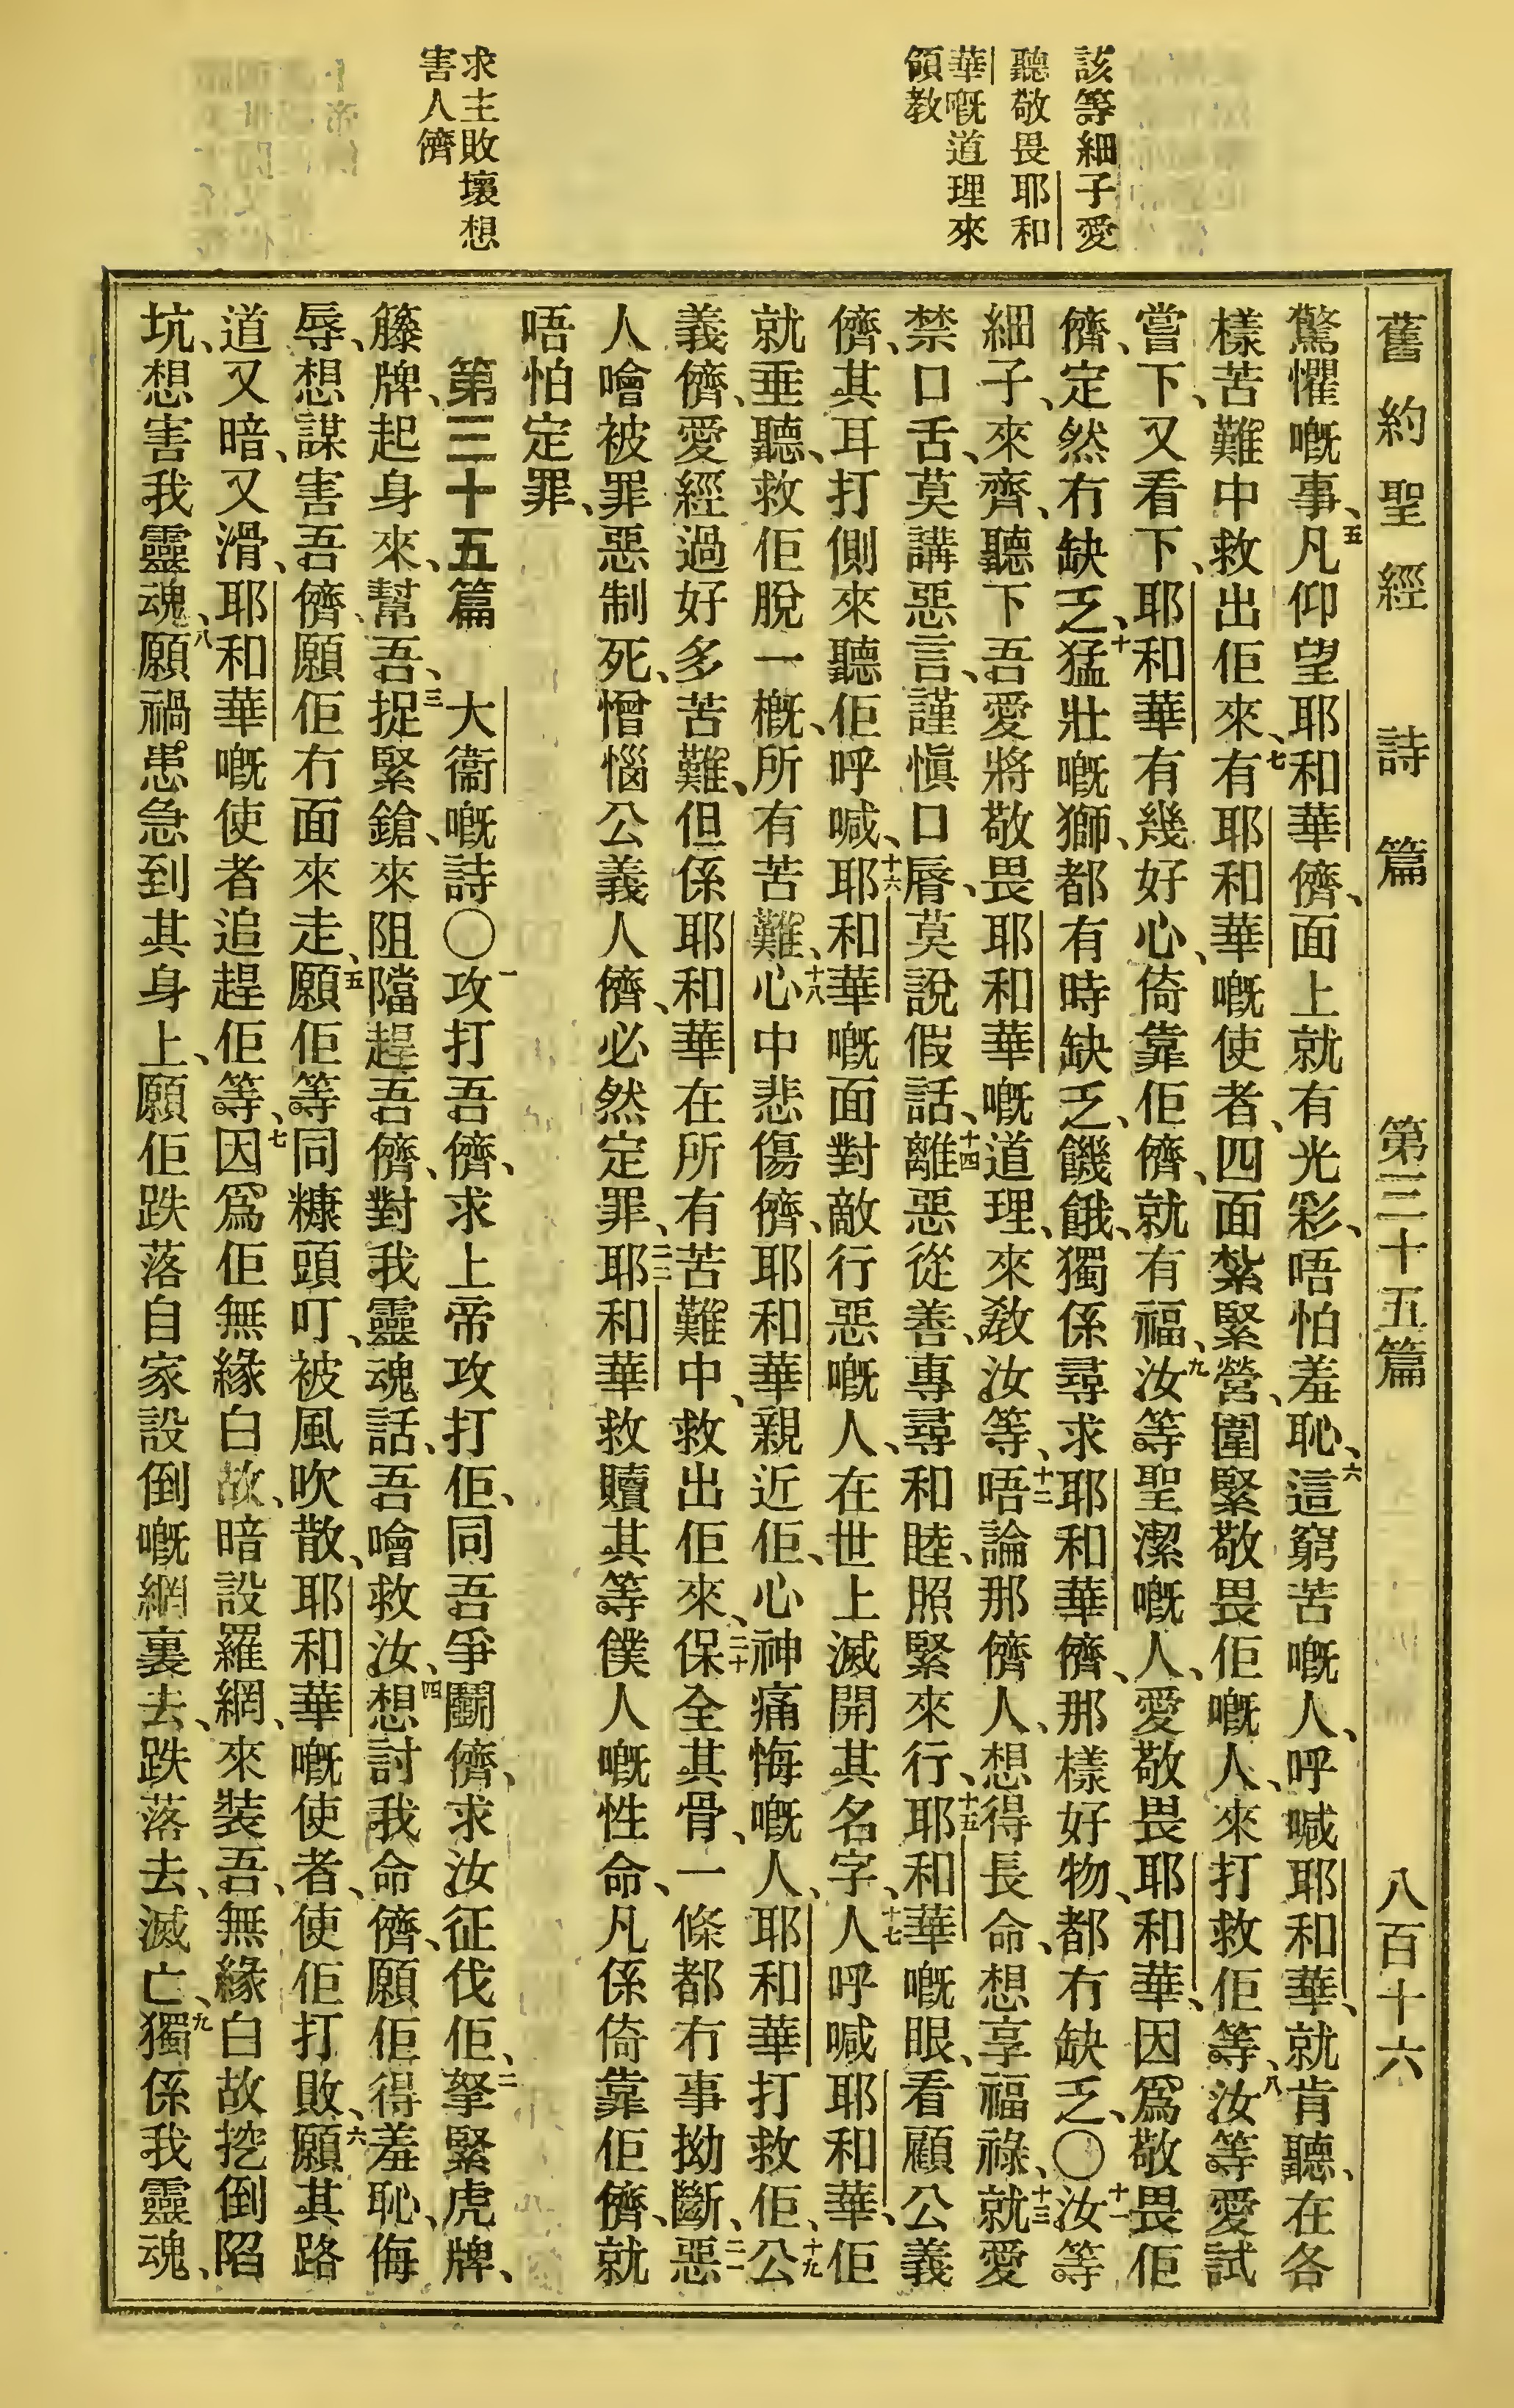 舊約聖經 詩篇 第三十五篇 八百十六
該等細子愛
聽敬畏耶和
華嘅道理來
領教
求主敗壞想
害人儕
驚懼嘅事、五凡仰望耶和華儕、面上就有光彩、唔怕羞恥、六這窮苦嘅人、呼喊耶和華、就肯聽、在各
樣苦難中救出佢來、七有耶和華嘅使者、四面紮緊營、圍緊敬畏佢嘅人、來打救佢等、八汝等愛試
嘗下、又看下、耶和華有幾好心、倚靠佢儕、就有福、九汝等聖潔嘅人、愛敬畏耶和華、因爲敬畏佢
儕、定然冇缺乏、十猛壯嘅獅、都有時缺乏、饑餓、獨係尋求耶和華儕、那樣好物、都冇缺乏、〇十一汝等
細子、來齊、聽下吾愛將敬畏耶和華嘅道理、來敎汝等、十二唔論那儕人、想得長命、想享福祿、十三就愛
禁口舌、莫講惡言、謹愼口脣、莫說假話、十四離惡從善、專尋和睦、照緊來行、十五耶和華嘅眼、看顧公義
儕、其耳打側來聽佢呼喊、十六耶和華嘅面對敵行惡嘅人、在世上滅開其名字、十七人呼喊耶和華、佢
就垂聽、救佢脫一概、所有苦難、十八心中悲傷儕、耶和華親近佢、心神痛悔嘅人、耶和華打救佢、十九公
義儕、愛經過好多苦難、但係耶和華在所有苦難中、救出佢來、二十保全其骨、一條都冇事拗斷、二一惡
人噲被罪惡制死、憎惱公義人儕、必然定罪、二二耶和華救贖其等僕人嘅性命、凡係倚靠佢儕、就
唔怕定罪、
第三十五篇 大衞嘅詩〇一攻打吾儕、求上帝攻打佢、同吾爭鬭儕、求汝征伐佢、二拏緊虎牌、
籐牌、起身來、幫吾、三捉緊鎗、來阻擋趕吾儕、對我靈魂話、吾噲救汝、四想討我命儕、願佢得羞恥、侮
辱、想謀害吾儕、願佢冇面來走、五願佢等同糠頭叮、被風吹散、耶和華嘅使者、使佢打敗、六願其路
道又暗、又滑、耶和華嘅使者追趕佢等、七因爲佢無緣白故、暗設羅網、來裝吾、無緣白故挖倒陷
坑、想害我靈魂、八願禍患急到其身上、願佢跌落自家設倒嘅網裏去、跌落去、滅亡、九獨係我靈魂、